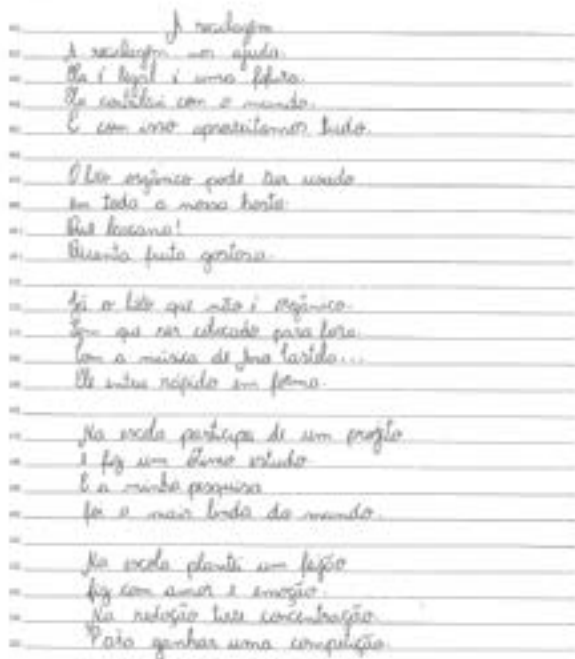 A reciclagem
A reciclagem nos ajuda.
Ela é legal é uma
Ela contribui com o mundo.
E com isso aproveitamos tudo.
O lixo orgânico pode ser usado
em toda a nossa horta.
Que bacana!
Quanta fruta gostosa.
Já o lixo que não é orgânico.
Tem que ser colocado para fora.
Com a música de
Ele entra rápido em forma.
Na escola participei de um projeto
e fiz um ótimo estudo.
E a minha pesquisa
foi a mais linda do mundo.
Na escola plantei um feijão
fiz com amor e emoção.
Na redação tive concentração.
Para ganhar uma competição.